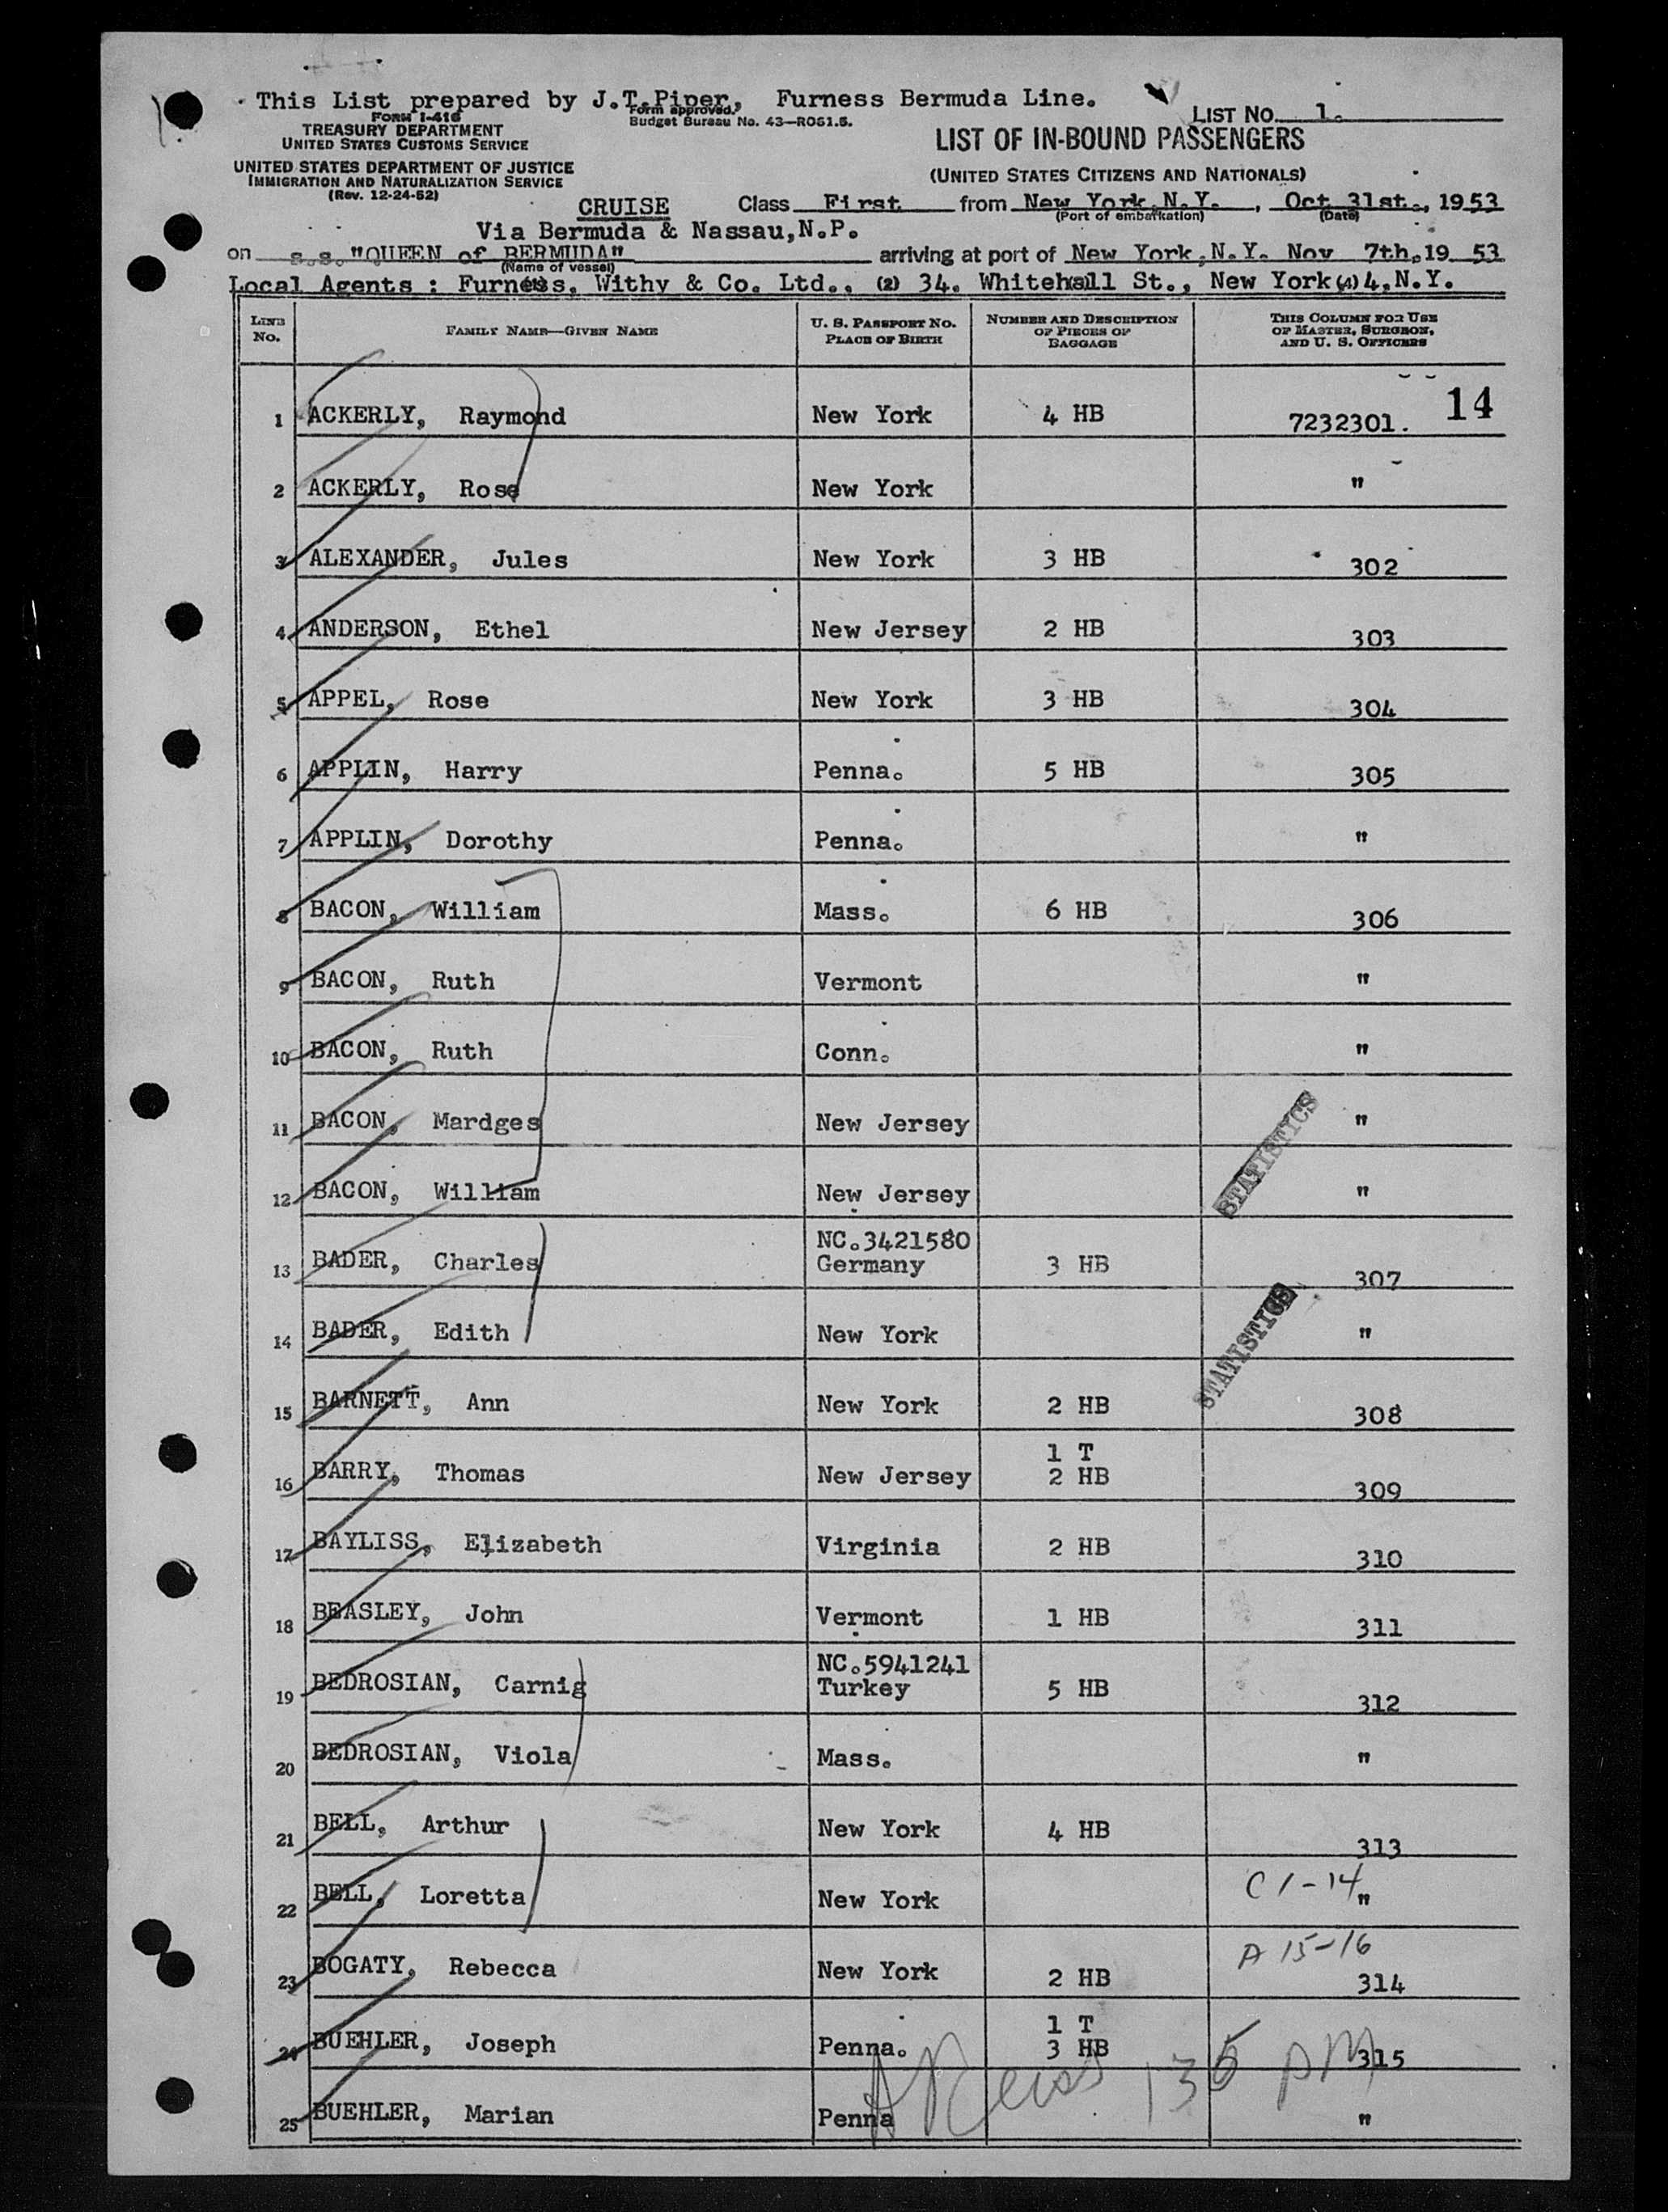 This List prepared by J.T.Piper, Furness Bermuda Line.
FORM I-416
TREASURY DEPARTMENT
UNITED STATES CUSTOMS SERVICE
UNITED STATES DEPARTMENT OF JUSTICE
IMMIGRATION AND NATURALIZATION SERVICE
(Rev. 12-24-52)
Form approved.
Budget Bureau No. 43—RO51.5.
LIST NO. 1.
LIST OF IN-BOUND PASSENGERS
(UNITED STATES CITIZENS AND NATIONALS)
CRUISE Class First from New York, N.Y., Oct 31st., 1953
(Port of embarkation) (Date)
Via Bermuda & Nassau,N.P.
on s.s. "QUEEN of BERMUDA" arriving at port of New York, N.Y. Nov 7th, 19 53
(Name of vessel)
Local Agents : Furness, Withy & Co. Ltd., (2) 34. Whitehall St., New York (4) 4, N.Y.
LINE No. FAMILY NAME—GIVEN NAME U. S. PASSPORT NO. PLACE OF BIRTH NUMBER AND DESCRIPTION OF PIECES OF BAGGAGE THIS COLUMN FOR USE OF MASTER, SURGEON, AND U. S. OFFICERS
14
1 ACKERLY, Raymond New York 4 HB 7232301.
2 ACKERLY, Rose New York "
3 ALEXANDER, Jules New York 3 HB 302
4 ANDERSON, Ethel New Jersey 2 HB 303
5 APPEL, Rose New York 3 HB 304
6 APPLIN, Harry Penna. 5 HB 305
7 APPLIN, Dorothy Penna. "
8 BACON, William Mass. 6 HB 306
9 BACON, Ruth Vermont "
10 BACON, Ruth Conn. "
11 BACON, Mardges New Jersey "
STATISTICS
12 BACON, William New Jersey "
NC.3421580
13 BADER, Charles Germany 3 HB 307
14 BADER, Edith New York "
STATISTICS
15 BARNETT, Ann New York 2 HB 308
1 T
16 BARRY, Thomas New Jersey 2 HB 309
17 BAYLISS, Elizabeth Virginia 2 HB 310
18 BEASLEY, John Vermont 1 HB 311
NC.5941241
19 BEDROSIAN, Carnig Turkey 5 HB 312
20 BEDROSIAN, Viola Mass. "
21 BELL, Arthur New York 4 HB 313
22 BELL, Loretta New York C 1-14 "
A 15-16
23 BOGATY, Rebecca New York 2 HB 314
1 T
24 BUEHLER, Joseph Penna. 3 HB 315
135 PM
25 BUEHLER, Marian Penna "